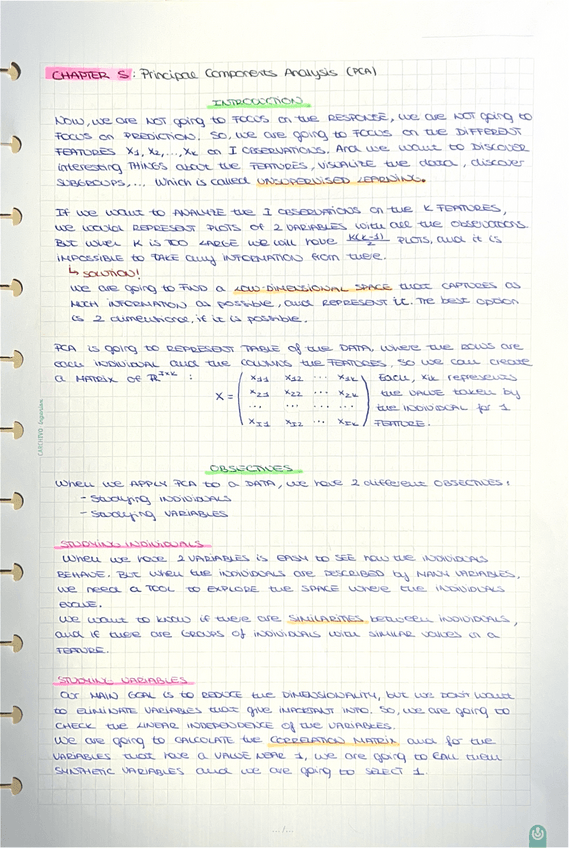 CHAPTER 5: Principal Components Analysis (PCA)
INTRODUCTION
NOW, we are NOT going to FOCUS on the RESPONSE, we are NOT going to
FOCUS on PREDICTION. SO, we are going to FOCUS on the DIFFERENT
FEATURES X1, X2, ..., XK on I OBSERVATIONS. And we want to DISCOVER
interesting THINGS about the FEATURES, VISUALIZE the data, discover
SUBGROUPS, ... Which is called UNSUPERVISED LEARNING.
If we want to ANALYZE the I OBSERVATIONS on the K FEATURES,
we would REPRESENT PLOTS of 2 VARIABLES with all the OBSERVATIONS.
But when K IS TOO LARGE we will have K(K-1)/2 PLOTS, and it is
IMPOSSIBLE to TAKE any INFORMATION from there.
↳ SOLUTION!
We are going to FIND a LOW-DIMENSIONAL SPACE that CAPTURES as
MUCH INFORMATION as possible, and REPRESENT it. The best option
is 2 dimensions, if it is possible.
PCA is going to REPRESENT TABLE of the DATA, where the ROWS are
each INDIVIDUAL and the COLUMNS the FEATURES, SO we can create
a MATRIX of ℝ^IxK :
X = ( x11 x12 ... x1K ) Each, xik represents
x21 x22 ... x2K the VALUE taken by
... ... ... ... the INDIVIDUAL for 1
xI1 xI2 ... xIK FEATURE.
OBJECTIVES
When we APPLY PCA to a DATA, we have 2 different OBJECTIVES:
- Studying INDIVIDUALS
- Studying VARIABLES
STUDYING INDIVIDUALS
When we have 2 VARIABLES is EASY to SEE how the INDIVIDUALS
BEHAVE. But when the INDIVIDUALS are DESCRIBED by MANY VARIABLES,
we need a TOOL to EXPLORE the SPACE where the INDIVIDUALS
EVOLVE.
We want to know if there are SIMILARITIES between INDIVIDUALS,
and if there are GROUPS of INDIVIDUALS with SIMILAR VALUES in a
FEATURE.
STUDYING VARIABLES
Our MAIN GOAL is to REDUCE the DIMENSIONALITY, but we DON'T want
to ELIMINATE VARIABLES that give IMPORTANT INFO. SO, we are going to
CHECK the LINEAR INDEPENDENCE of the VARIABLES.
We are going to CALCULATE the CORRELATION MATRIX and for the
VARIABLES that have a VALUE NEAR 1, we are going to CALL them
SYNTHETIC VARIABLES and we are going to SELECT 1.
.../...